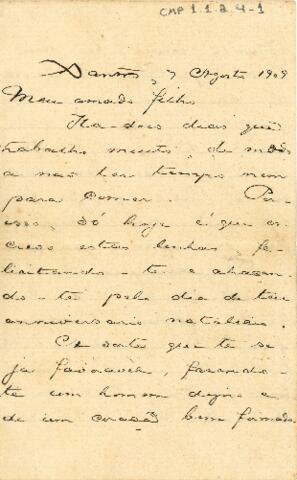 CMP 1.1.2.4-1
Santos, 7 Agosto 1909
Meu amado filho
Ha dois dias que
trabalho muito, de modo
a não ter tempo nem
para comer. Por
isso, só hoje é que es-
crevo estas linhas, fe-
licitando-te e abraçan-
do-te pelo dia de teu
anniversario natalicio.
que te se-
ja favoravel, fazendo-
te um homem digno e
de um coração bem formado.